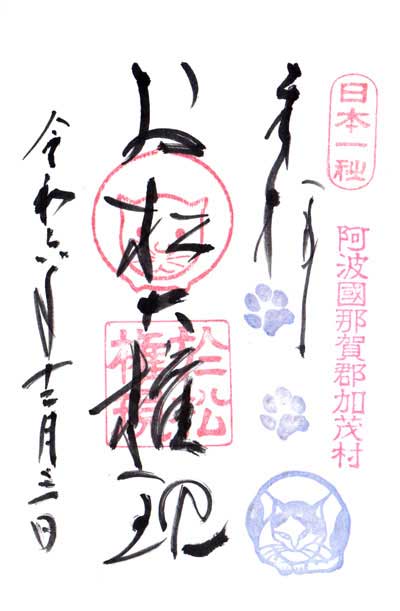 日本一社
阿波國那賀郡加茂村
奉拝
お松大権現
於松
権現
令和六年十二月三日